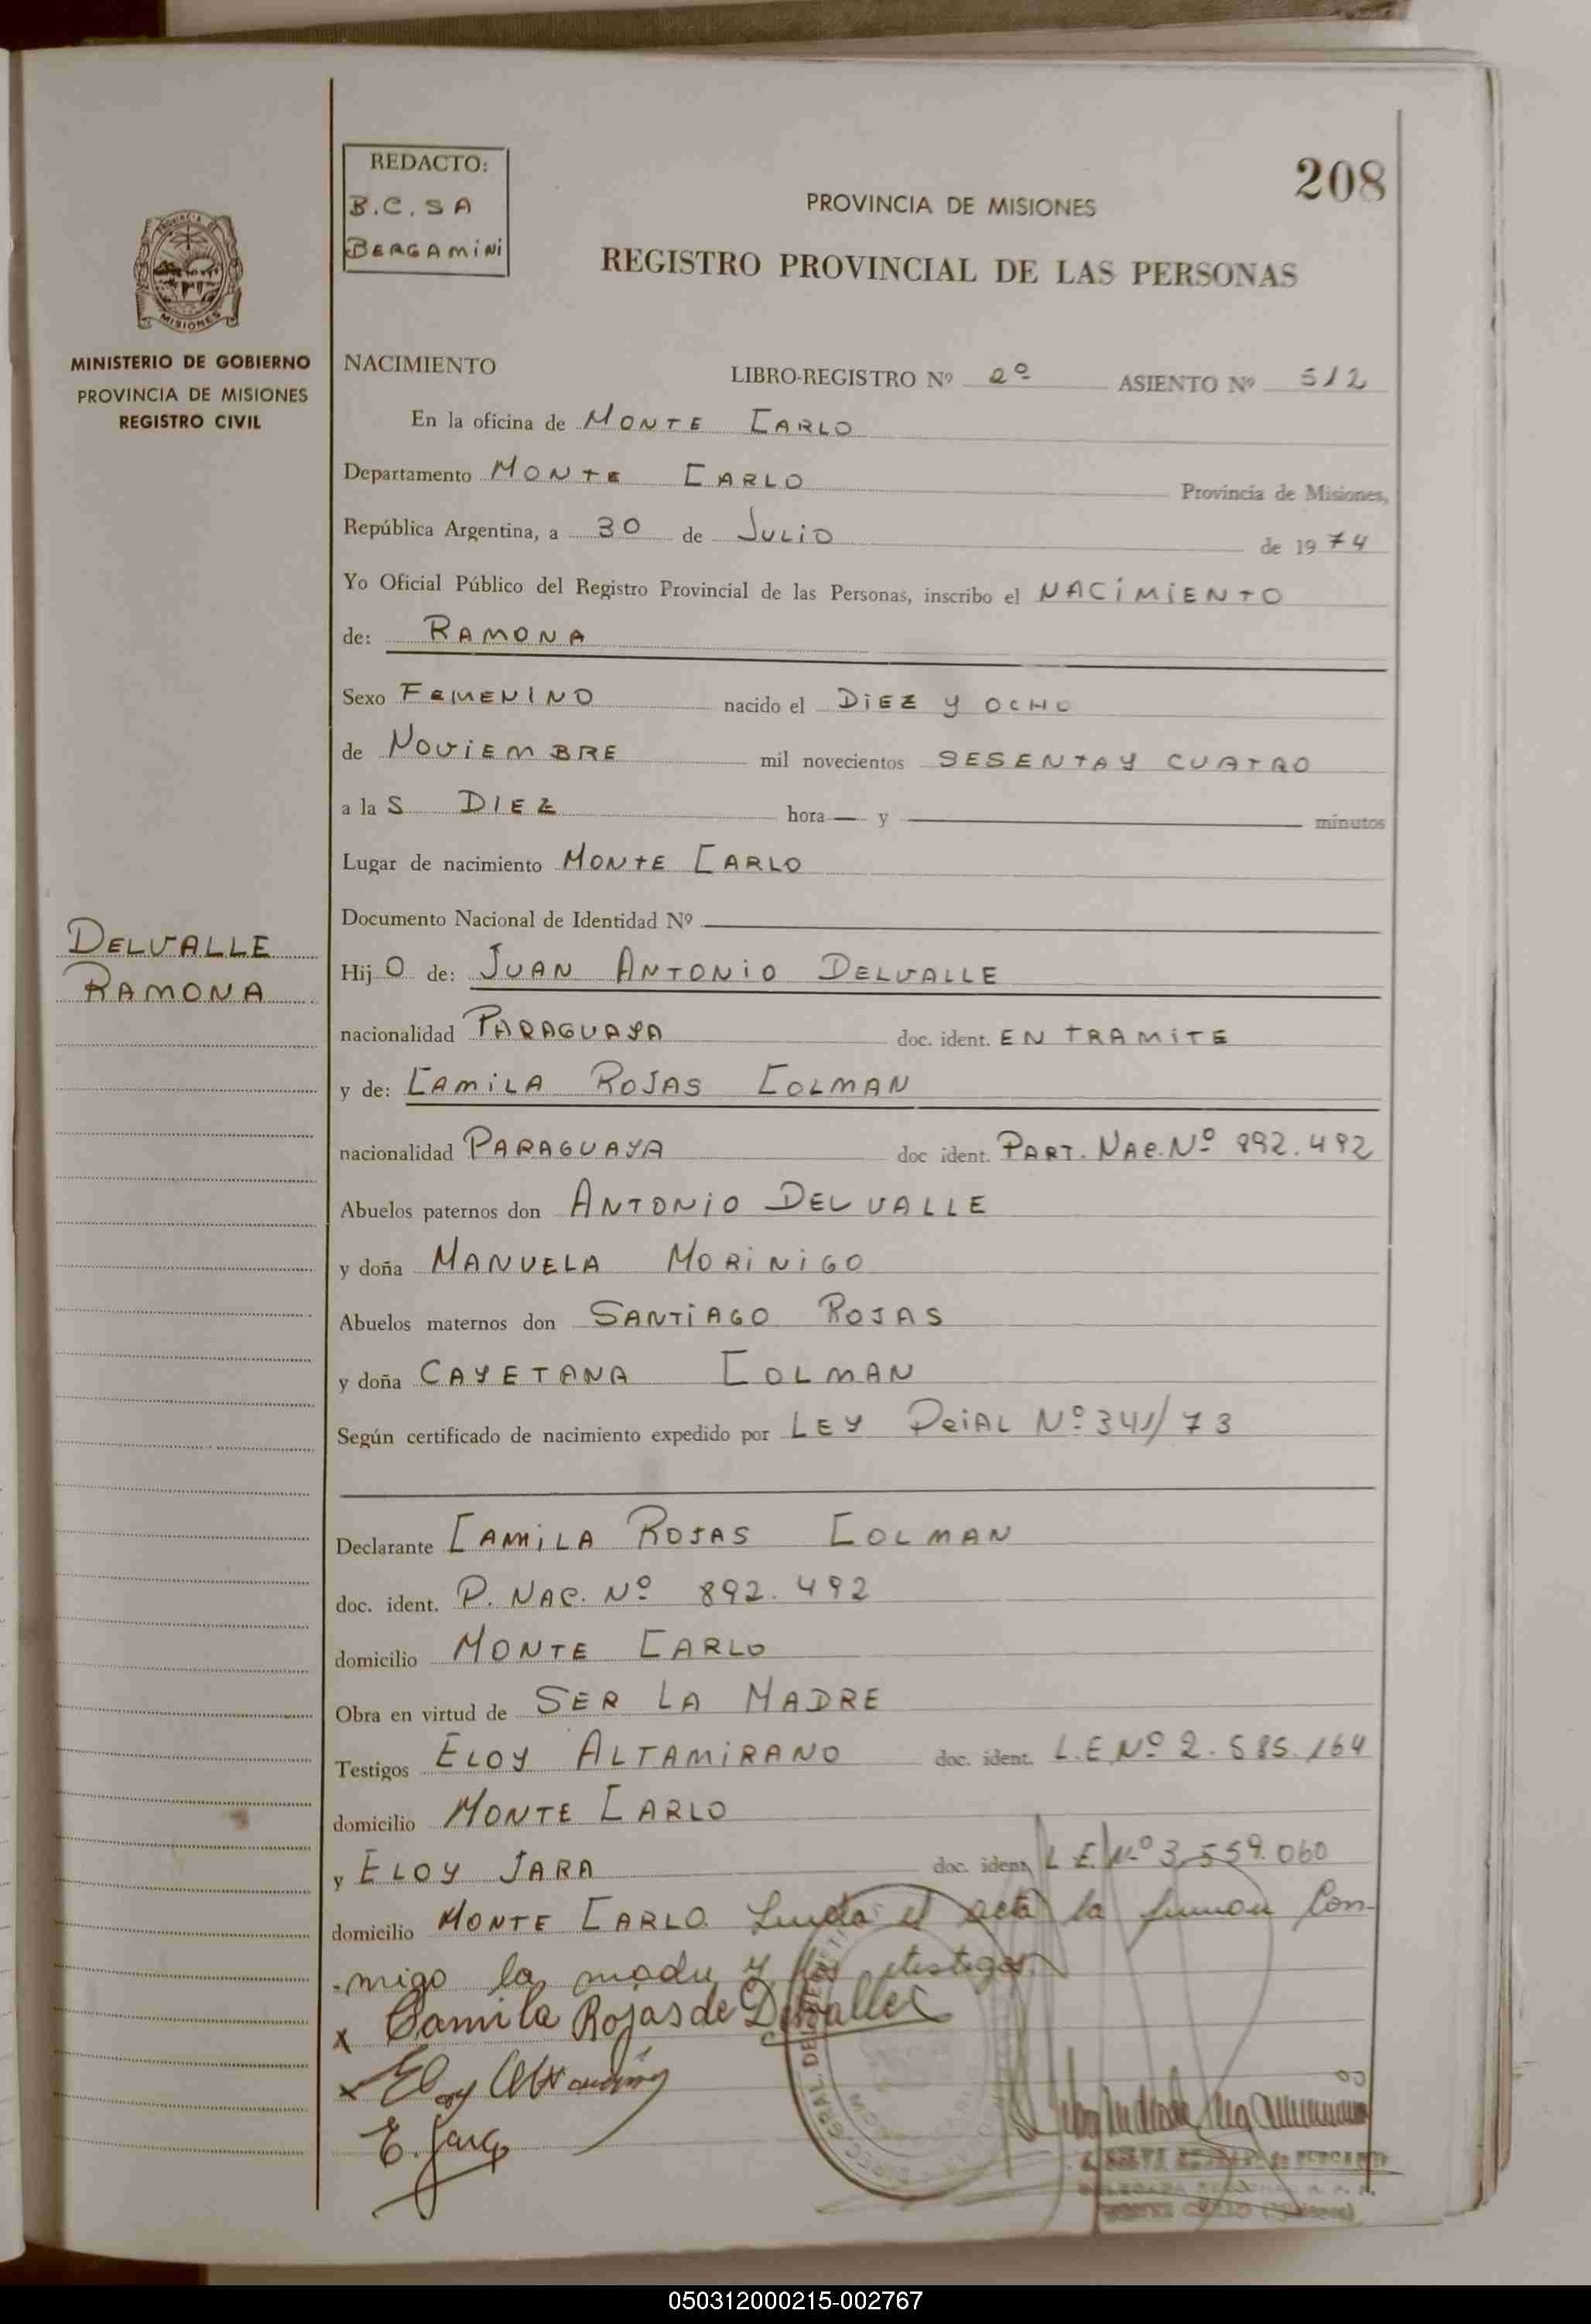 REDACTO:
B.C.SA
BERGAMINI
208
PROVINCIA DE MISIONES
REGISTRO PROVINCIAL DE LAS PERSONAS
MISIONES
MINISTERIO DE GOBIERNO
PROVINCIA DE MISIONES
REGISTRO CIVIL
NACIMIENTO LIBRO-REGISTRO Nº 2º ASIENTO Nº 512
En la oficina de MONTE CARLO
Departamento MONTE CARLO Provincia de Misiones,
República Argentina, a 30 de JULIO de 1974
Yo Oficial Público del Registro Provincial de las Personas, inscribo el NACIMIENTO
de: RAMONA
Sexo FEMENINO nacido el DIEZ y OCHO
de NOVIEMBRE mil novecientos SESENTA Y CUATRO
a la S DIEZ hora — y — minutos
Lugar de nacimiento MONTE CARLO
Documento Nacional de Identidad Nº
DELVALLE
RAMONA
Hij O de: JUAN ANTONIO DELVALLE
nacionalidad PARAGUAYA doc. ident. EN TRAMITE
y de: CAMILA ROJAS COLMAN
nacionalidad PARAGUAYA doc ident. PART. NAC. Nº 892.492
Abuelos paternos don ANTONIO DELVALLE
y doña MANUELA MORINIGO
Abuelos maternos don SANTIAGO ROJAS
y doña CAYETANA COLMAN
Según certificado de nacimiento expedido por LEY PciAL Nº 341/73
Declarante CAMILA ROJAS COLMAN
doc. ident. P. NAC. Nº 892.492
domicilio MONTE CARLO
Obra en virtud de SER LA MADRE
Testigos ELOY ALTAMIRANO doc. ident. L.E Nº 2.585.164
domicilio MONTE CARLO
y ELOY JARA doc. ident. L E. Nº 3.559.060
domicilio MONTE CARLO. Leida el acta la firman Con-
-migo la madre y los testigos.
x Camila Rojas de Delvalle
x Eloy Altamirano
E. Jara
050312000215-002767